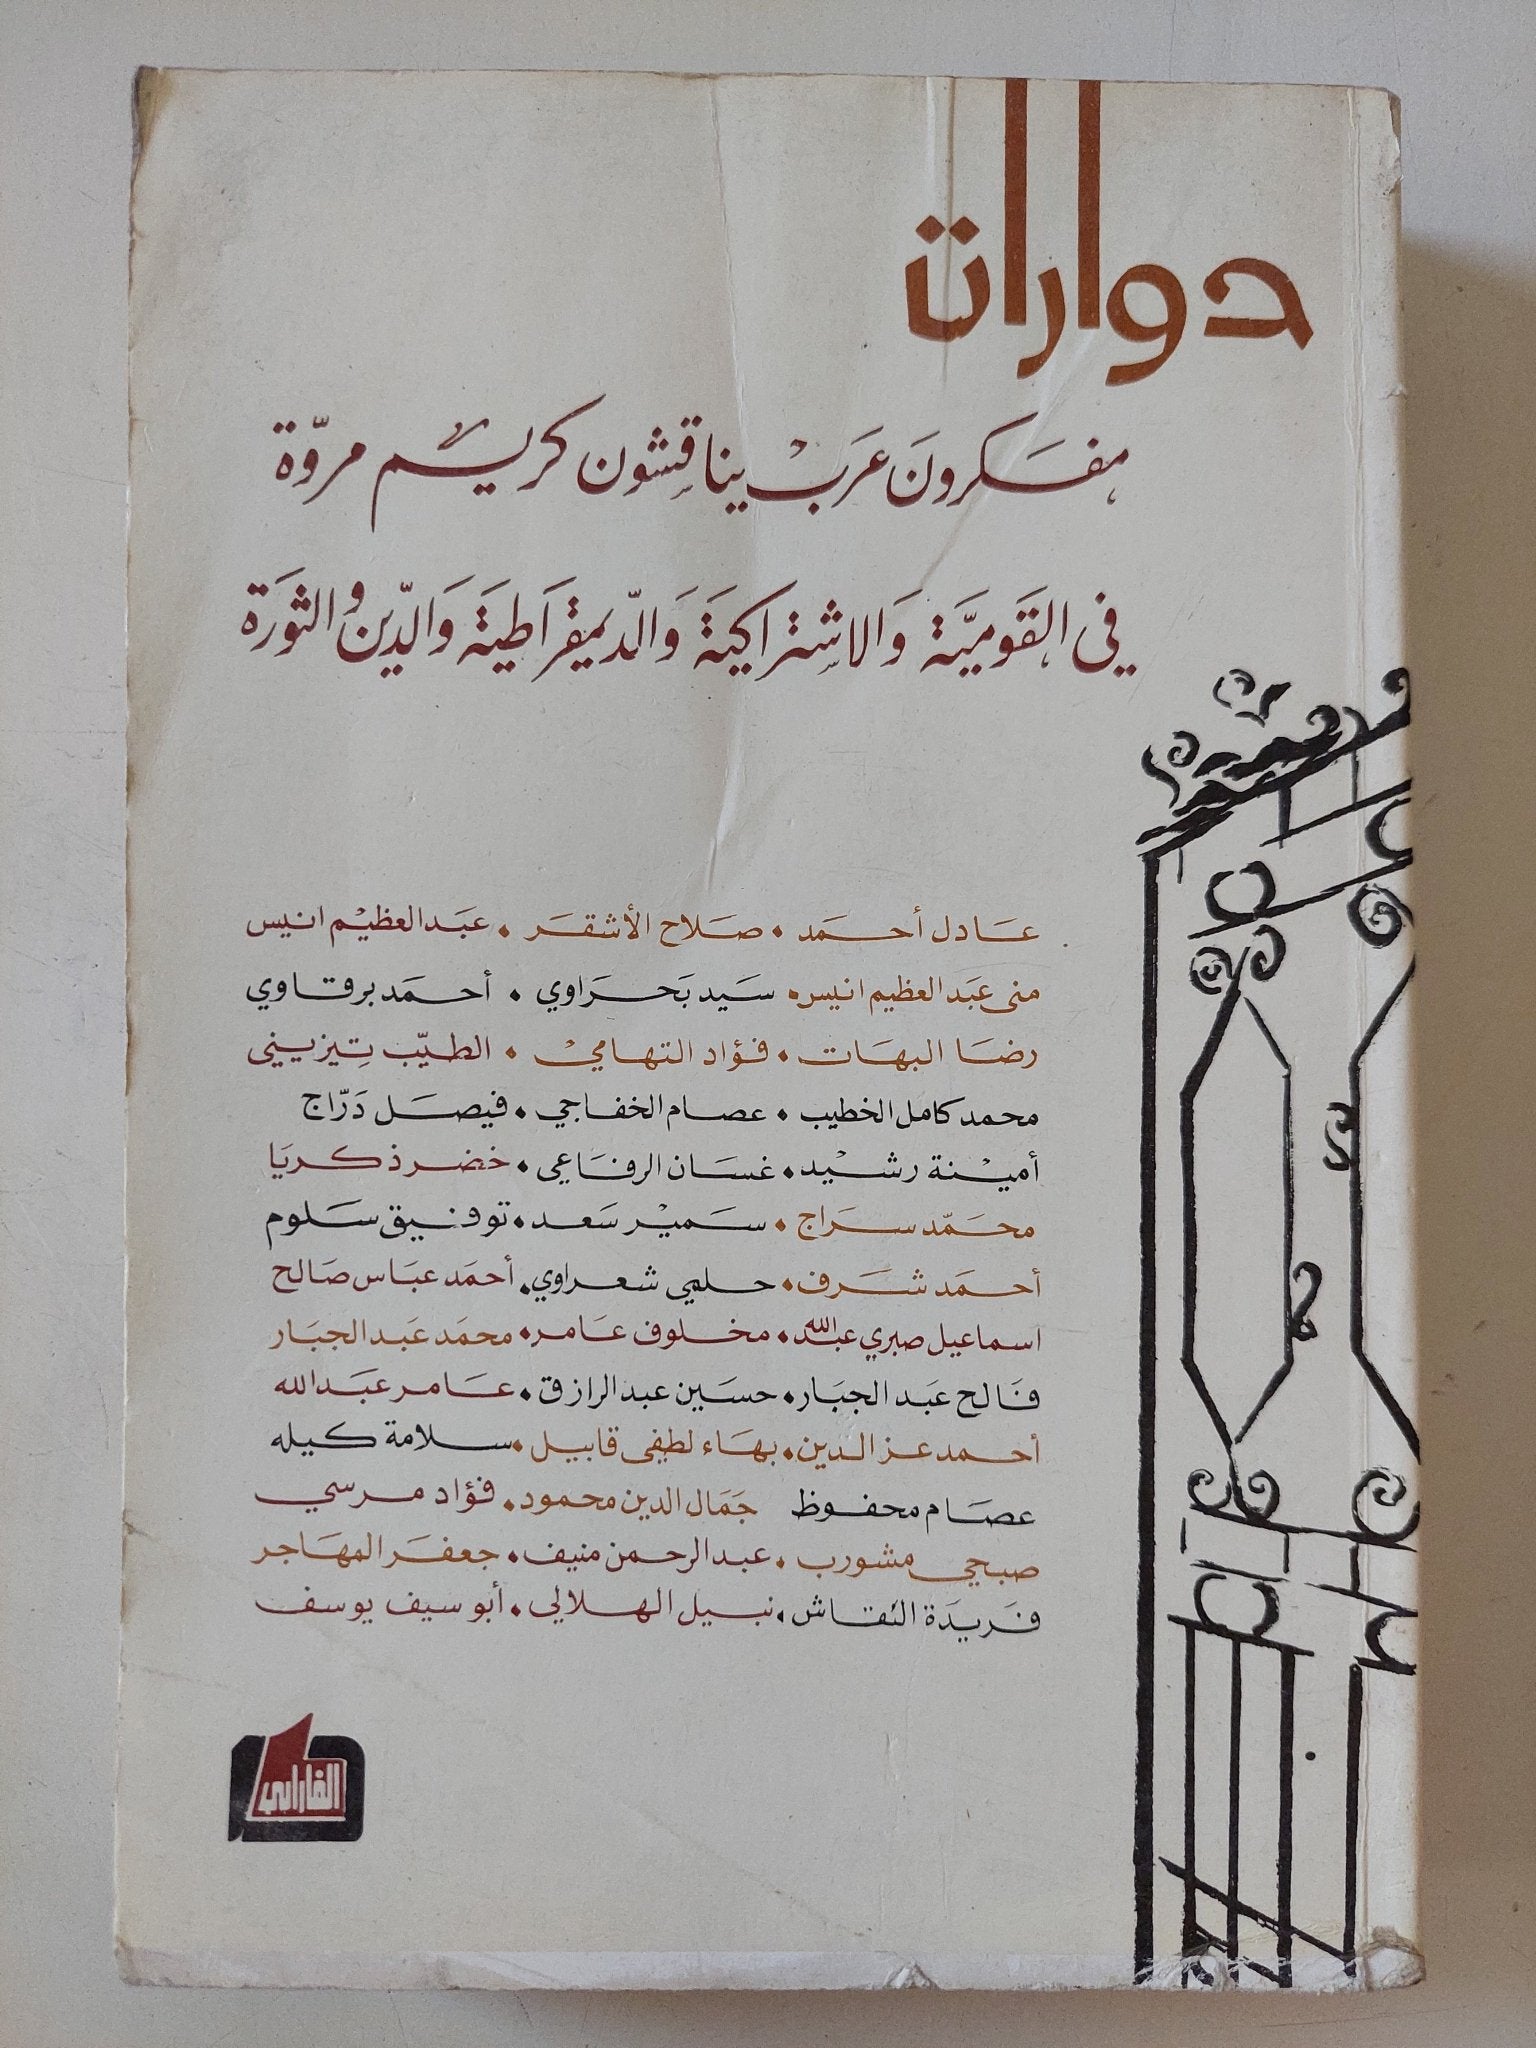 حوارات
مفَكرونَ عَربْ يناقِشون كريم مروّة
في القَوميَّة وَالاشِتراكيَة وَالدّيمقراَطيَة وَالدّين والثورَة
عَادل أحمَد • صَلاح الأشقَر • عبَد العظيْم انيس
منى عبَد العظيم انيس • سَيد بَحرَاوي • أحمَد برقاوي
رضَا البهَات • فؤاد التهاميْ • الطيّب تِيزيني
محمد كامل الخطيب • عصام الخفاجي • فيصَل دَرّاج
أميْنة رشيْد • غسَان الرفاَعي • خضر زكريَا
محمَّد سرَاج • سَميْر سَعد • توفيق سَلوم
أحمَد شرَف • حلمي شعراوي • أحمَد عبَاس صَالح
اسماعيل صبري عبدالله • مخلوف عَامر • محمَد عَبد الجبَار
فَالح عَبد الجبَار • حسَين عبد الرازق • عَامر عبَدالله
أحمد عز الدين • بهَاء لطفي قابيل • سلامة كيله
عصَام محفوظ جَمَال الدين محمود • فؤاد مرسي
صبحي مشورب • عبد الرحمن منيف • جعفَر المهَاجر
فَريدَة النقاش • نبيل الهلالي • أبو سيف يوسف
دار الفارابي